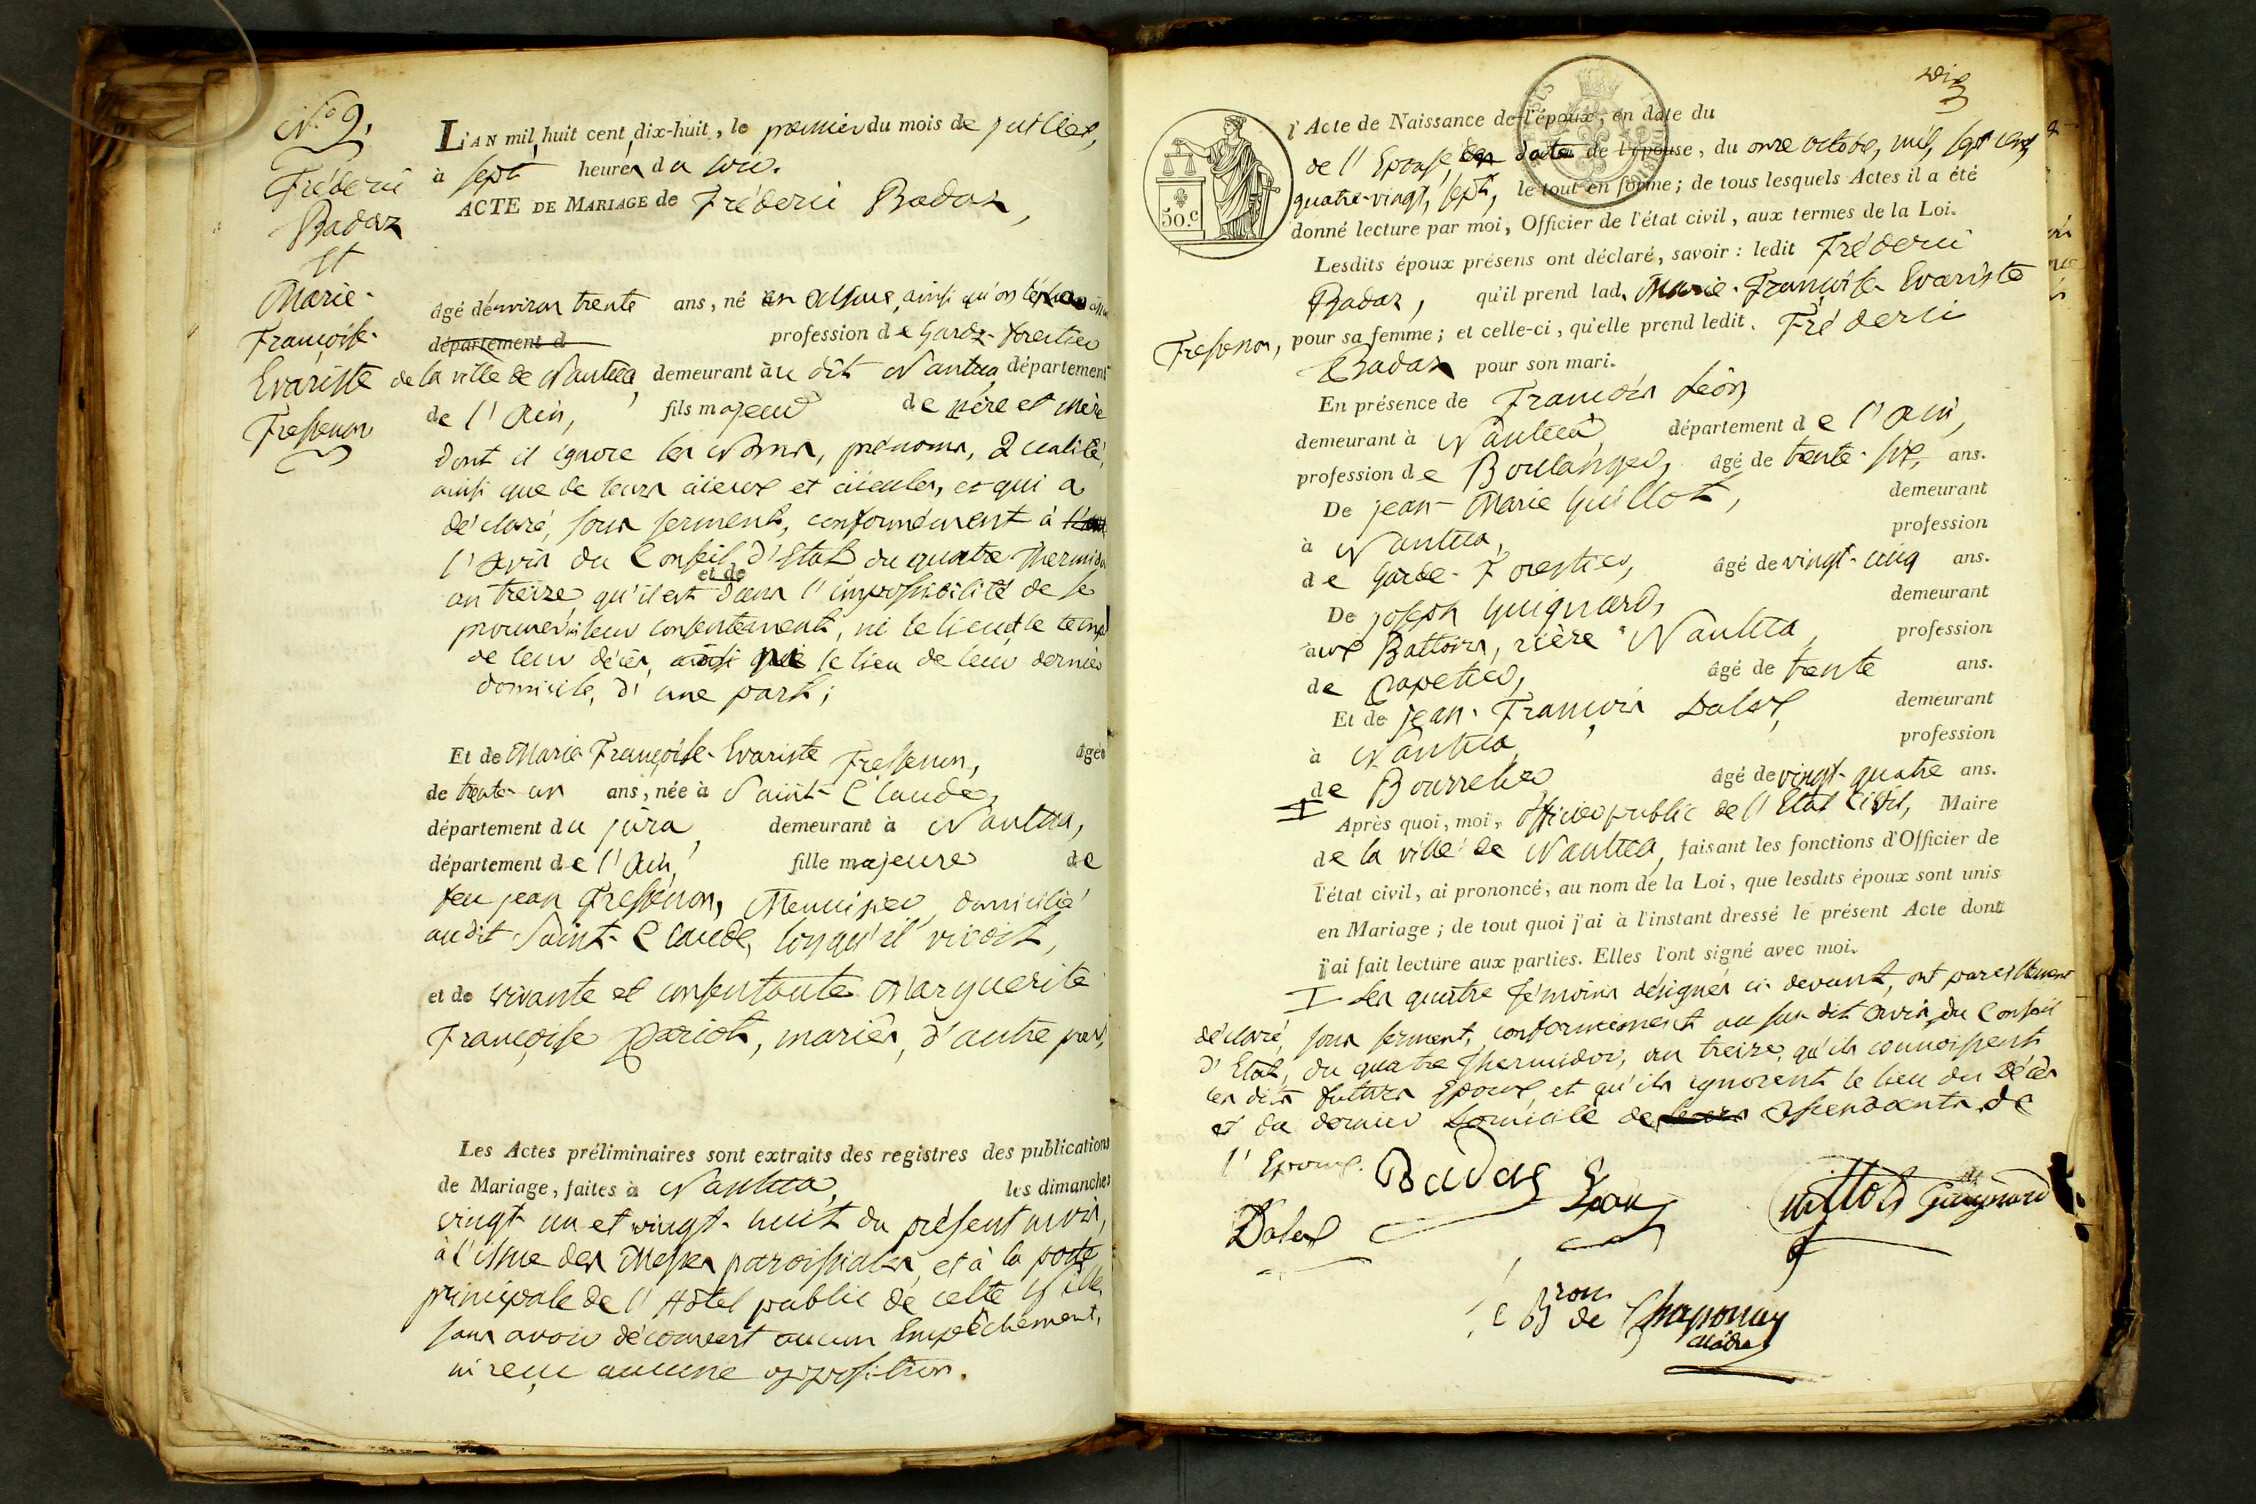 N.º 9.
Fréderic
Badaz
et
Marie-
Françoise-
Evariste
Fressenon
L'AN mil huit cent dix-huit, le premier du mois de juillet,
à sept heures du soir.
ACTE DE MARIAGE de Fréderic Badaz,
âgé d'environ trente ans, né en alsace, ainsi qu'on
département d profession de Garde-forestier
de la ville de Nantua, demeurant au dit Nantua département
de l'Ain, fils majeur de père et mère
dont il ignore les Noms, prénoms, & qualité,
ainsi que de leurs aieux et aieules, et qui a
déclaré, sous serment, conformément à
l'Avis du Conseil d'Etat du quatre Thermidor
et de
an treize, qu'il est dans l'impossibilité de se
procurer ni leur consentement, ni le lieu et le temps
de leur décès, ainsi que le lieu de leur dernier
domicile, d'une part;
Et de Marie Françoise-Evariste Fressenon, âgée
de trente-un ans, née à Saint-Claude,
département du jura, demeurant à Nantua,
département de l'Ain, fille majeure de
feu jean Fressenon, Menuisier, domicilié
audit Saint-Claude, lorsqu'il vivoit,
et de vivante et consentante Marguerite
Françoise Pariot, mariés, d'autre part,
Les Actes préliminaires sont extraits des registres des publications
de Mariage, faites à Nantua, les dimanches
vingt-un et vingt-huit du présent mois,
à l'issue des Messes paroissiales, et à la porte
principale de l'Hôtel public de cette Ville,
sans avoir découvert aucun Empêchement,
ni reçu aucune opposition.
dix
50.c
l'Acte de Naissance de l'époux, en date du
de l'Epouse, en date de l'épouse, du onze octobre, mil, sept cent
quatre-vingt, sept, le tout en forme; de tous lesquels Actes il a été
donné lecture par moi, Officier de l'état civil, aux termes de la Loi.
Lesdits époux présens ont déclaré, savoir: ledit Fréderic
Badaz, qu'il prend lad. Marie-Françoise-Evariste
Fressenon, pour sa femme; et celle-ci, qu'elle prend ledit. Fréderic
Badaz pour son mari.
En présence de François Léon,
demeurant à Nantua, département de l'Ain,
profession de Boulanger, âgé de trente-six, ans.
De jean-Marie Guillot, demeurant
à Nantua, profession
de Garde-Forestier, âgé de vingt-cinq ans.
De joseph Guignard, demeurant
aux Battoirs, rière Nantua, profession
de Papetier, âgé de trente ans.
Et de jean-François Dalex, demeurant
à Nantua, profession
de Bourrelier âgé de vingt-quatre ans.
Après quoi, moi, officier public de l'Etat Civil, Maire
de la ville de Nantua, faisant les fonctions d'Officier de
l'état civil, ai prononcé, au nom de la Loi, que lesdits époux sont unis
en Mariage; de tout quoi j'ai à l'instant dressé le présent Acte dont
j'ai fait lecture aux parties. Elles l'ont signé avec moi.
Les quatre témoins désignés ci-devant, ont pareillement
déclaré, sous serment, conformément au sus dit avis du Conseil
d'Etat, du quatre Thermidor, an treize, qu'ils connoissent
les dits futurs Epoux, et qu'ils ignorent le lieu du décès
et du dernier domicile de leurs ascendants de
l'Epoux. Badaz Léon Guillot Guignard
Dalex
le Bron de Chaponay
Maire